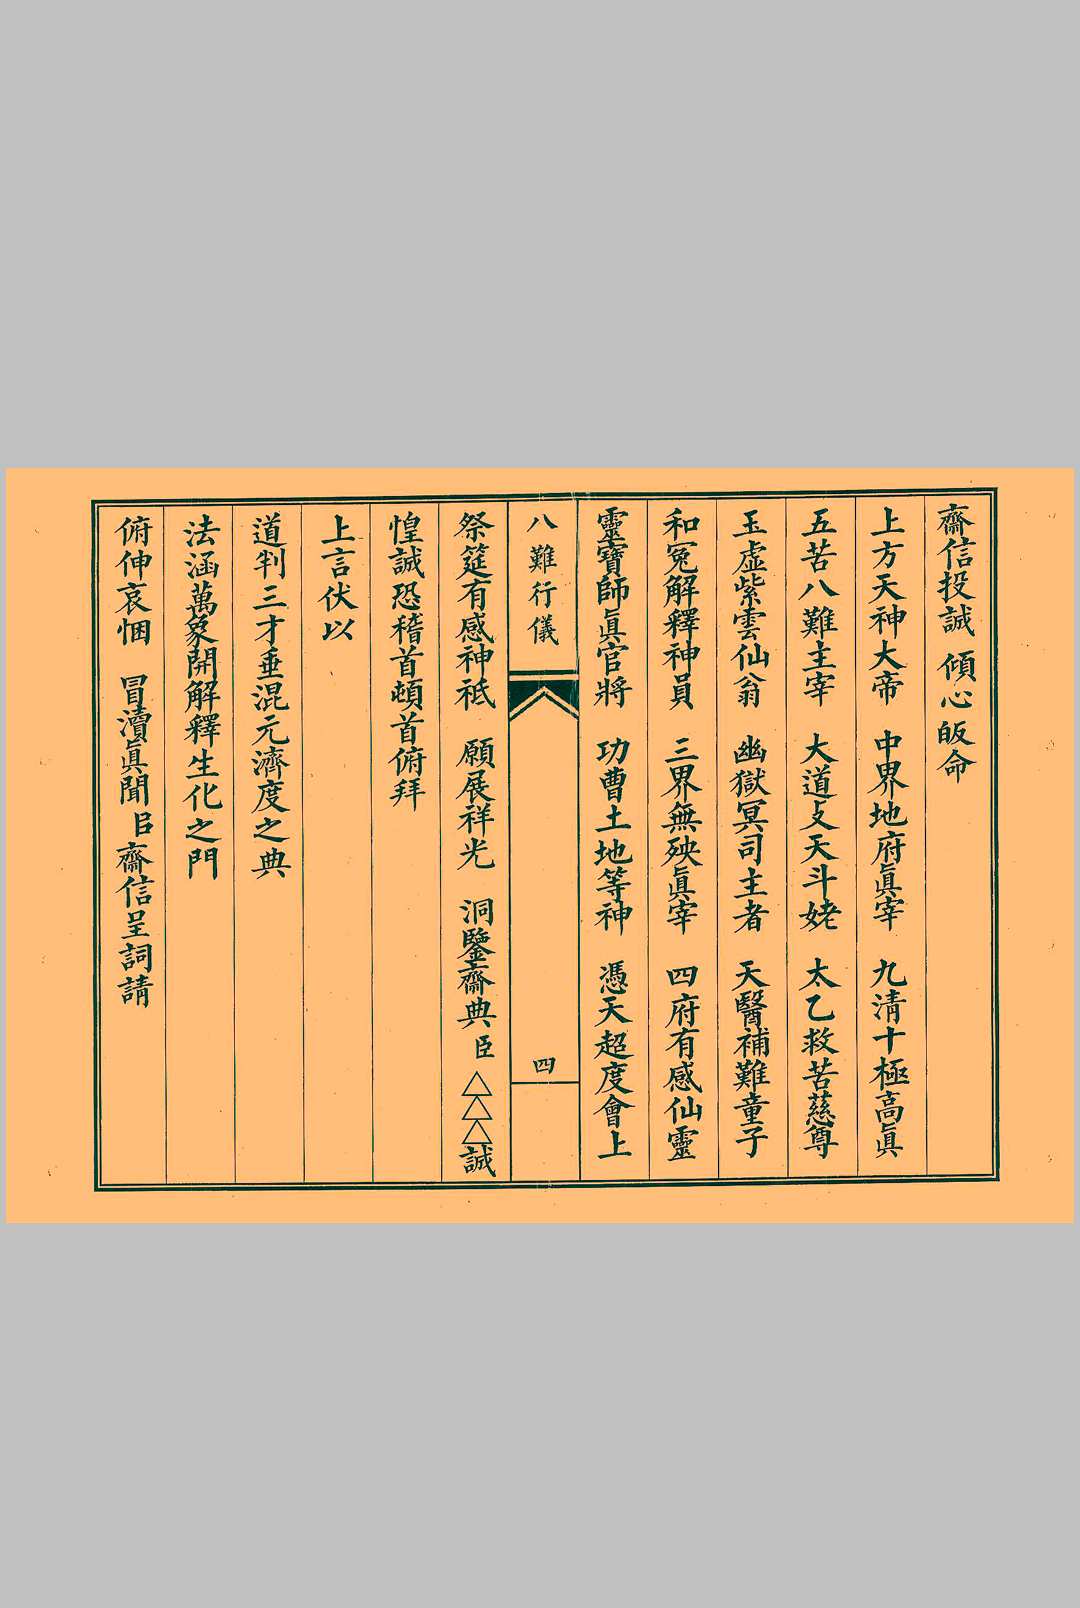 齋信投誠 傾心皈命
上方天神大帝 中界地府眞宰 九清十極高眞
五苦八難主宰 大道㐆天斗姥 太乙救苦慈尊
玉虛紫雲仙翁 幽獄冥司主者 天醫補難童子
和冤解釋神員 三界無殃眞宰 四府有感仙靈
靈寶師眞官將 功曹土地等神 憑天超度會上
八難行儀 四
祭筵有感神祇 願展祥光 洞鑒齋典臣△△△誠
惶誠恐稽首頓首俯拜
上言伏以
道判三才垂混元濟度之典
法涵萬象開解釋生化之門
俯伸哀悃 冒瀆眞聞臣齋信呈詞請